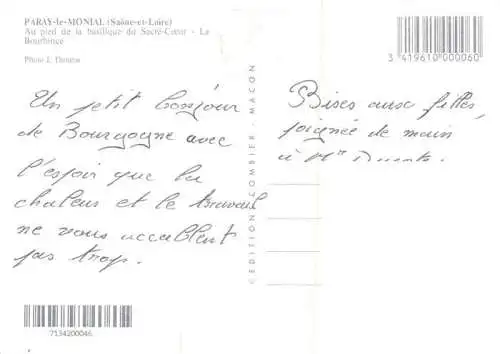 PARAY-le-MONIAL (Saône-et-Loire)
Au pied de la basilique du Sacré-Cœur - La
Bourbince
Photo J.
3 419610 000060
Un petit bonjour
de Bourgogne avec
l'espoir que la
chaleur et le travail
ne vous accablent
pas trop.
© EDITION COMBIER - MACON
Bises aux filles,
poignée de main
à Mr
7134200046